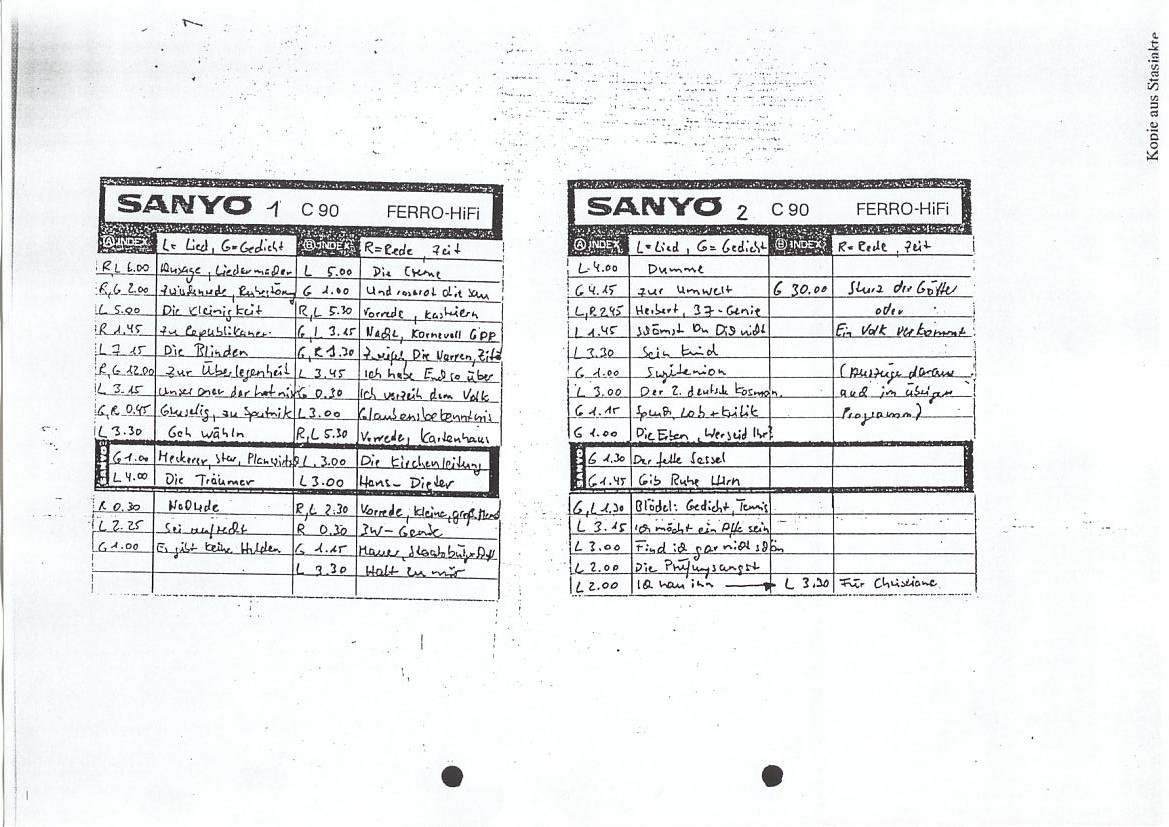 1
Kopie aus Stasiakte
SANYO 1 C 90 FERRO-HiFi
A INDEX L= Lied, G= Gedicht B INDEX R= Rede, Zeit
R, L 6.00 Ansage, Liedermacher L 5.00 Die Creme
R, G 2.00 G 1.00 Und rosarot die
L 5.00 Die Kleinigkeit R, L 5.30 Vorrede, kastriern
R 1.45 Zu Republikaner G, L 3.15 Karneval
L 7 15 Die Blinden G, R 1.30 Zweifel, Die Narren, Zita
R, G 12.00 Zur Überlegenheit L 3.45 Ich habe Endso über
L 3.15 Unsereiner der hat nix G 0.30 Ich verzeih dem Volk
G, R 0.45 Gruselig, zu Sputnik L 3.00 Glaubensbekenntnis
L 3.30 Geh wähln R, L 5.30 Vorrede, Kartenhaus
SANYO G 1.00 Meckerer, Star, Planwirts L 3.00 Die Kirchenleitung
L 4.00 Die Träumer L 3.00 Hans-Dieter
R 0.30 R, L 2.30 Vorrede, kleine, große
L 2.25 Sei aufrecht R 0.30 3W-Genie
G 1.00 Es gibt keine Helden G 1.15 Mauer,
L 3.30 Halt zu mir
SANYO 2 C 90 FERRO-HiFi
A INDEX L= Lied, G= Gedicht B INDEX R= Rede, Zeit
L 4.00 Dumme
G 4.15 Zur Umwelt G 30.00 Sturz der Götter
L, R 2.45 Herbert, 37-Genie oder
L 1.45 Schämst Du Dich nicht Ein Volk verkommt
L 3.30 Sein Kind
G 1.00 (Auszüge daraus
L 3.00 Der 2. deutsche Kosmon. auch im übrigen
G 1.15 Spruch, Lob + Kritik Programm)
G 1.00 Die Erben, Wer seid Ihr?
SANYO G 1.30 Der fette Sessel
G 1.45 Gib Ruhe Hirn
G, L 1.30 Blödel: Gedicht, Tennis
L 3.15 Ich möcht ein Affe sein
L 3.00 Find ich gar nicht schön
L 2.00 Die Prüfungsangst
L 2.00 Ich hau ihn → L 3.30 Für Christiane